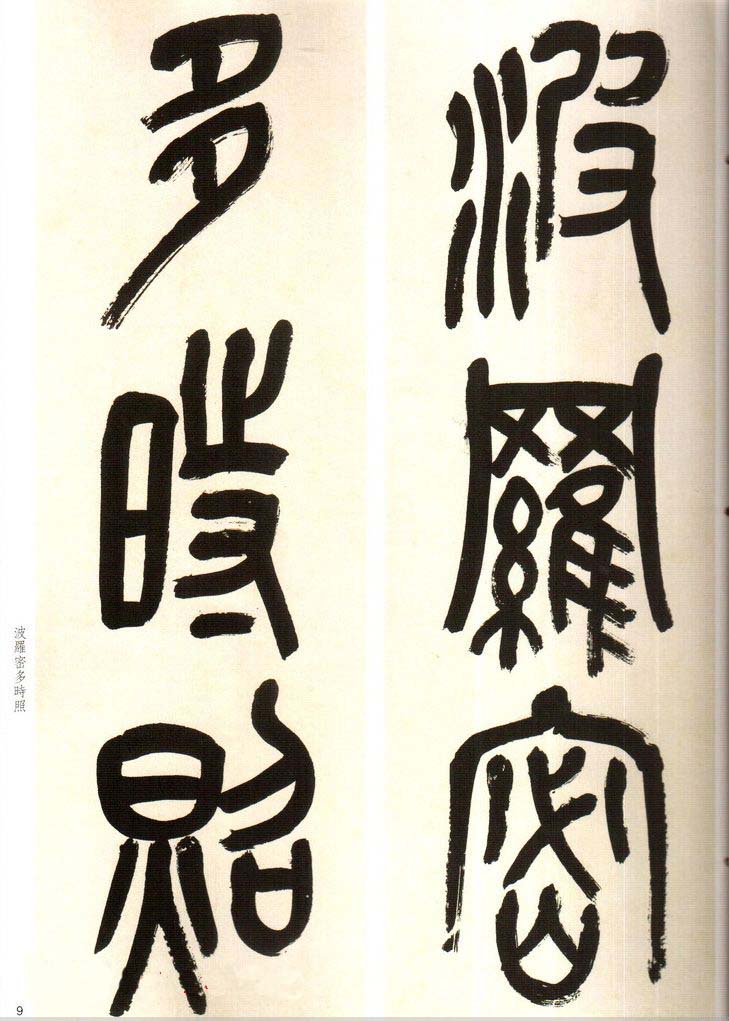 波羅密
多時照
波羅密多時照
9